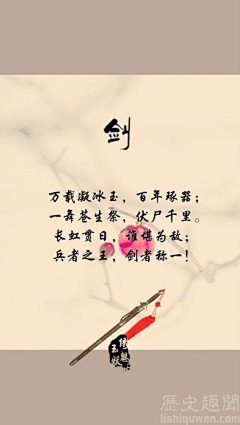 剑
万载凝冰玉，百年琢器；
一舞苍生祭，伏尸千里。
长虹贯日，谁堪为敌；
兵者之王，剑者称一！
歷史趣聞
lishiquwen.com